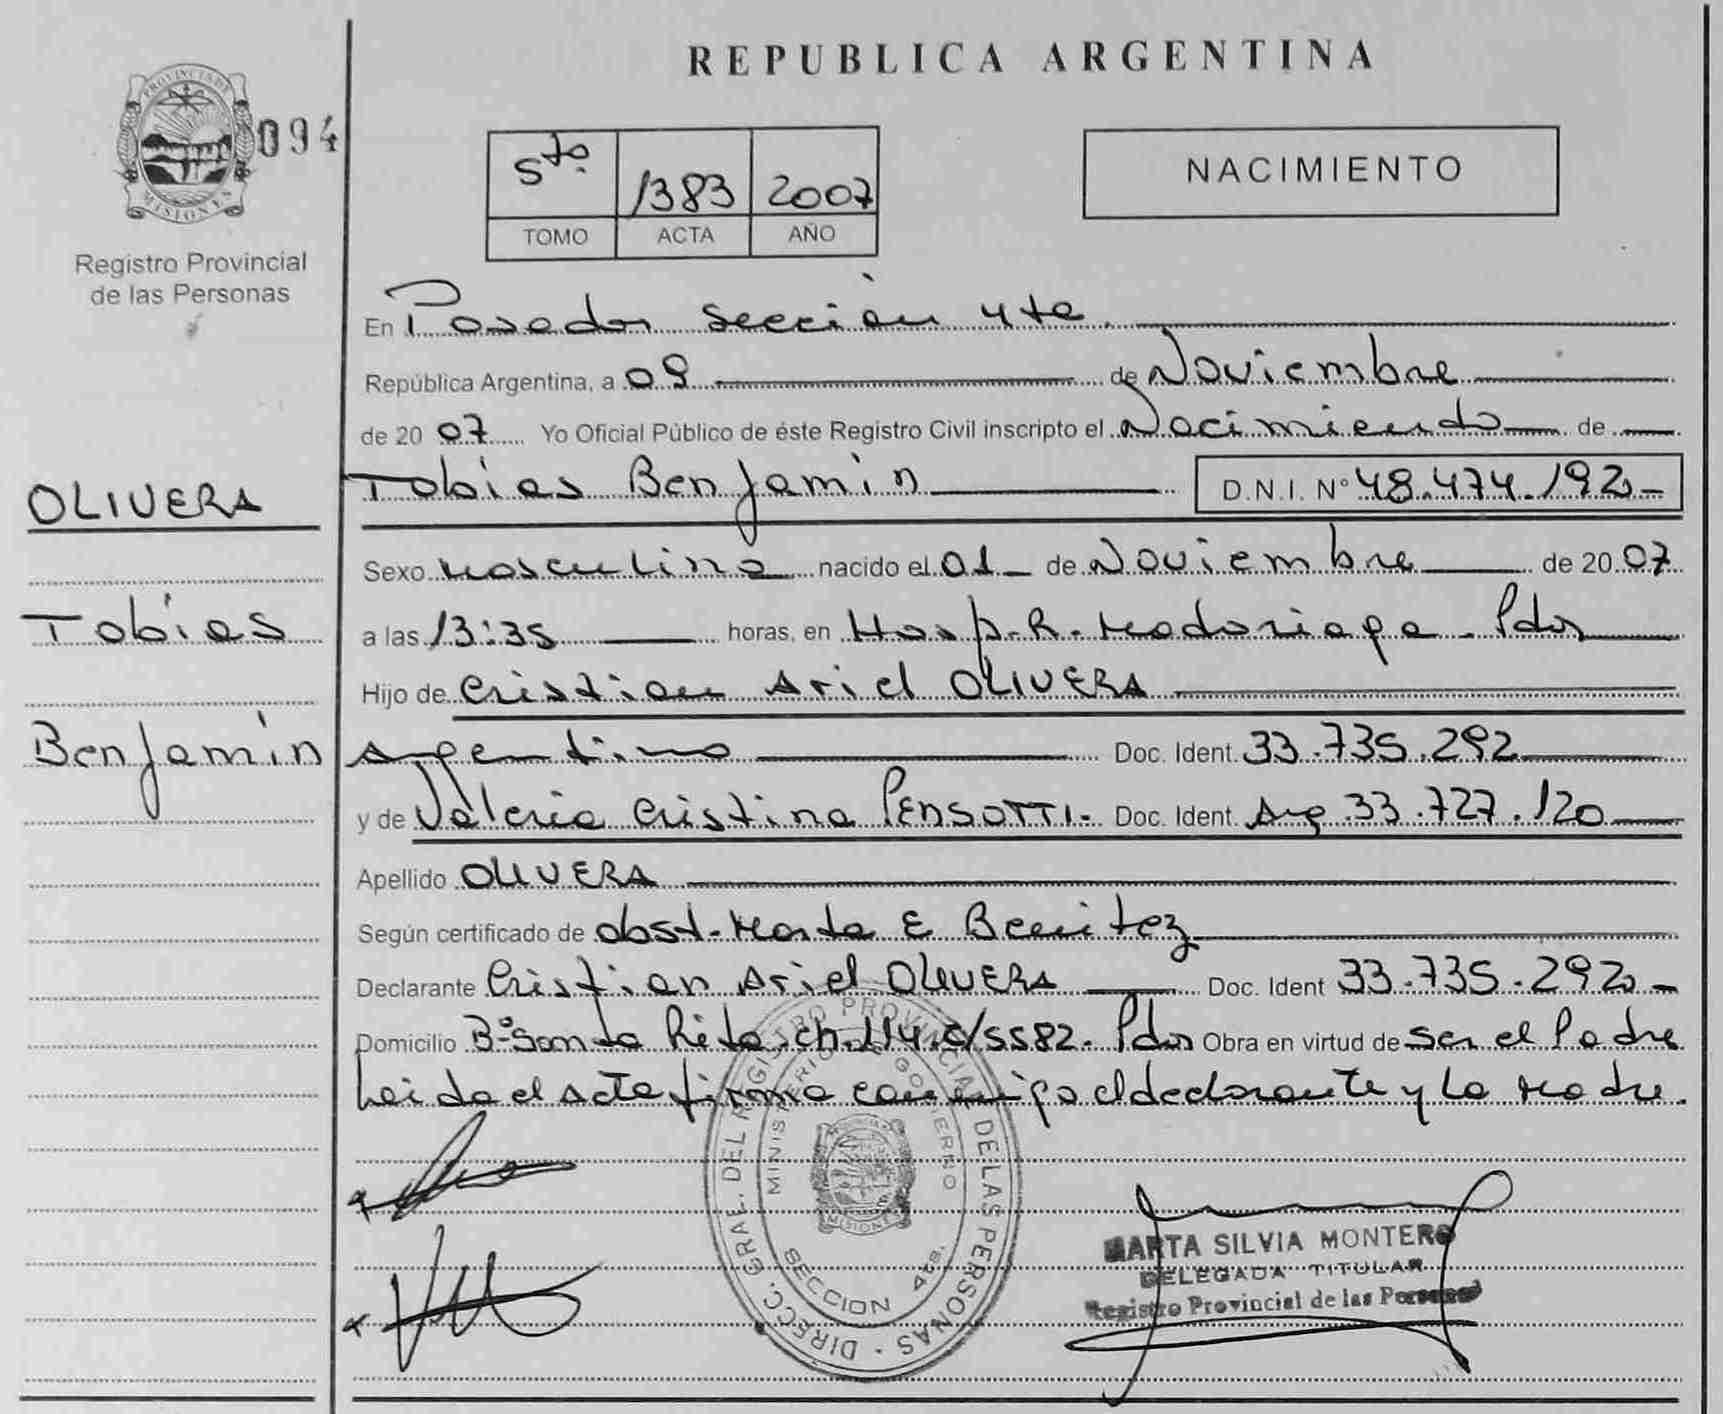 REPUBLICA ARGENTINA
PROVINCIA DE
MISIONES
094
Registro Provincial
de las Personas
5to. 1383 2007
TOMO ACTA AÑO
NACIMIENTO
En Posadas Sección 4ta.
República Argentina, a 09 de Noviembre
de 2007 Yo Oficial Público de éste Registro Civil inscripto el Nacimiento de
Tobias Benjamin D.N.I. Nº 48.474.192-
OLIVERA
Tobias
Benjamin
Sexo Masculino nacido el 01 de Noviembre de 2007
a las 13:35 horas, en Hosp. R. Madariaga - Pdas
Hijo de Cristian Ariel OLIVERA
Argentino Doc. Ident. 33.735.292
y de Valeria Cristina PENSOTTI.- Doc. Ident. Arg. 33.727.120
Apellido OLIVERA
Según certificado de obst. Marta E Benitez
Declarante Cristian Ariel OLIVERA Doc. Ident 33.735.292-
Domicilio Bº Santa Rita. ch. 114. c/5582. Pdas Obra en virtud de ser el Padre
Leida el acta firma conmigo el declarante y la Madre.
DIRECC. GRAL. DEL REGISTRO PROVINCIAL DE LAS PERSONAS
MINISTERIO DE GOBIERNO
MISIONES
SECCION 4ta.
MARTA SILVIA MONTERO
DELEGADA TITULAR
Registro Provincial de las Personas